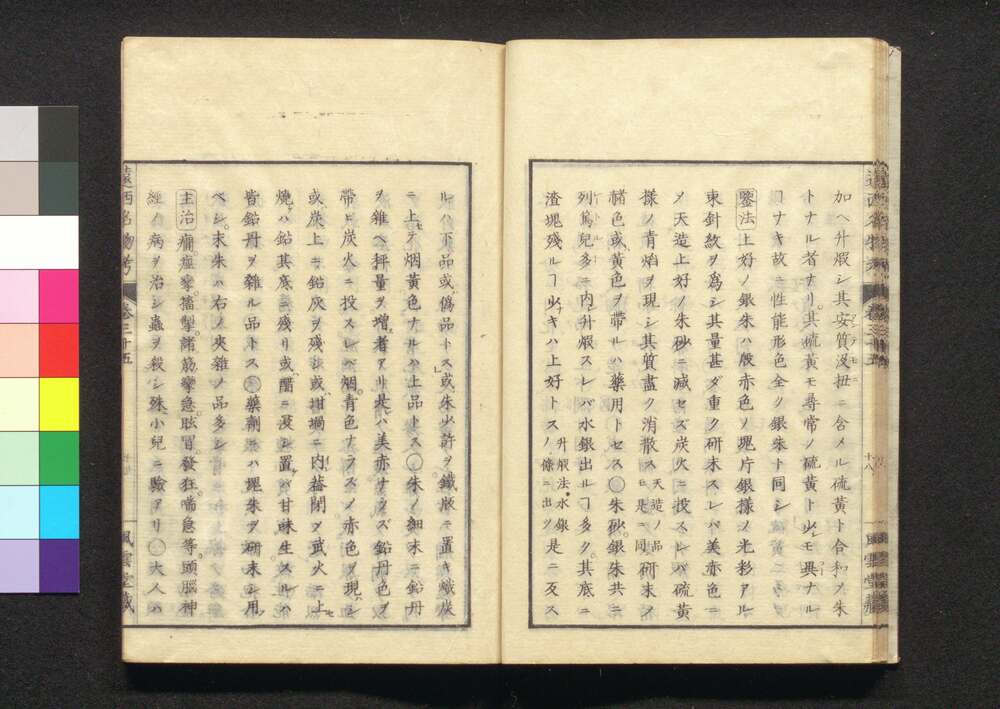 加ヘ升煆シ其安質没扭ニ含メル硫黄ト合和ノ朱
トナル者ナリ其硫黄モ尋常ノ硫黄ト少シモ異ナル
コナキ故ニ性能形色全ク銀朱ト同シ
鑒法 上好ノ銀朱ハ殷赤色ノ塊片銀様ノ光彩アル
束針紋ヲ為シ其量甚ダ重ク研末スレバ美赤色ニ
メ天造上好ノ朱砂ニ減セズ炭火ニ投スレバ硫黄
様ノ青焰ヲ現シ其質盡ク消散ス 天造ノ品モ是ニ同シ 研末ノ
赭色或黄色ヲ帯ルハ藥用トセス○朱砂銀朱共ニ
列篤兒多ニ内升煆スレバ水銀出ルコ多ク其底ニ
渣塊残ルコ少キハ上好トスノ 升煆法水銀ノ條ニ出ツ 是ニ反ス
ルハ下品或偽品トス或朱少許ヲ鐵版ニ置キ熾炭
ニ上セテ烟黄色ナルハ上品トス○朱ノ細末ニ鉛丹
ヲ雑ヘ秤量ヲ増者アリ是ハ美赤ナラズ鉛丹色ヲ
帯ヒ炭火ニ投スレバ烟青色ナラスノ赤色ヲ現シ
或炭上ニ鉛灰ヲ残シ或坩堝ニ内葢閉ヲ武火ニ上セ
燒ハ鉛其底ニ残リ或醋ニ浸シ置バ甘味生スルハ
皆鉛丹ヲ雑ル品トス○藥劑ニハ塊朱ヲ研末シ用
ベシ末朱ハ右ノ夾雑ノ品多シ
主治 癇痙攣搐掣諸筋攣急眩冒發狂喘急等頭腦神
經ノ病ヲ治シ蟲ヲ殺シ殊小兒ニ驗アリ○大人ハ
遠西名物考
巻三十五
風雲堂蔵
十八